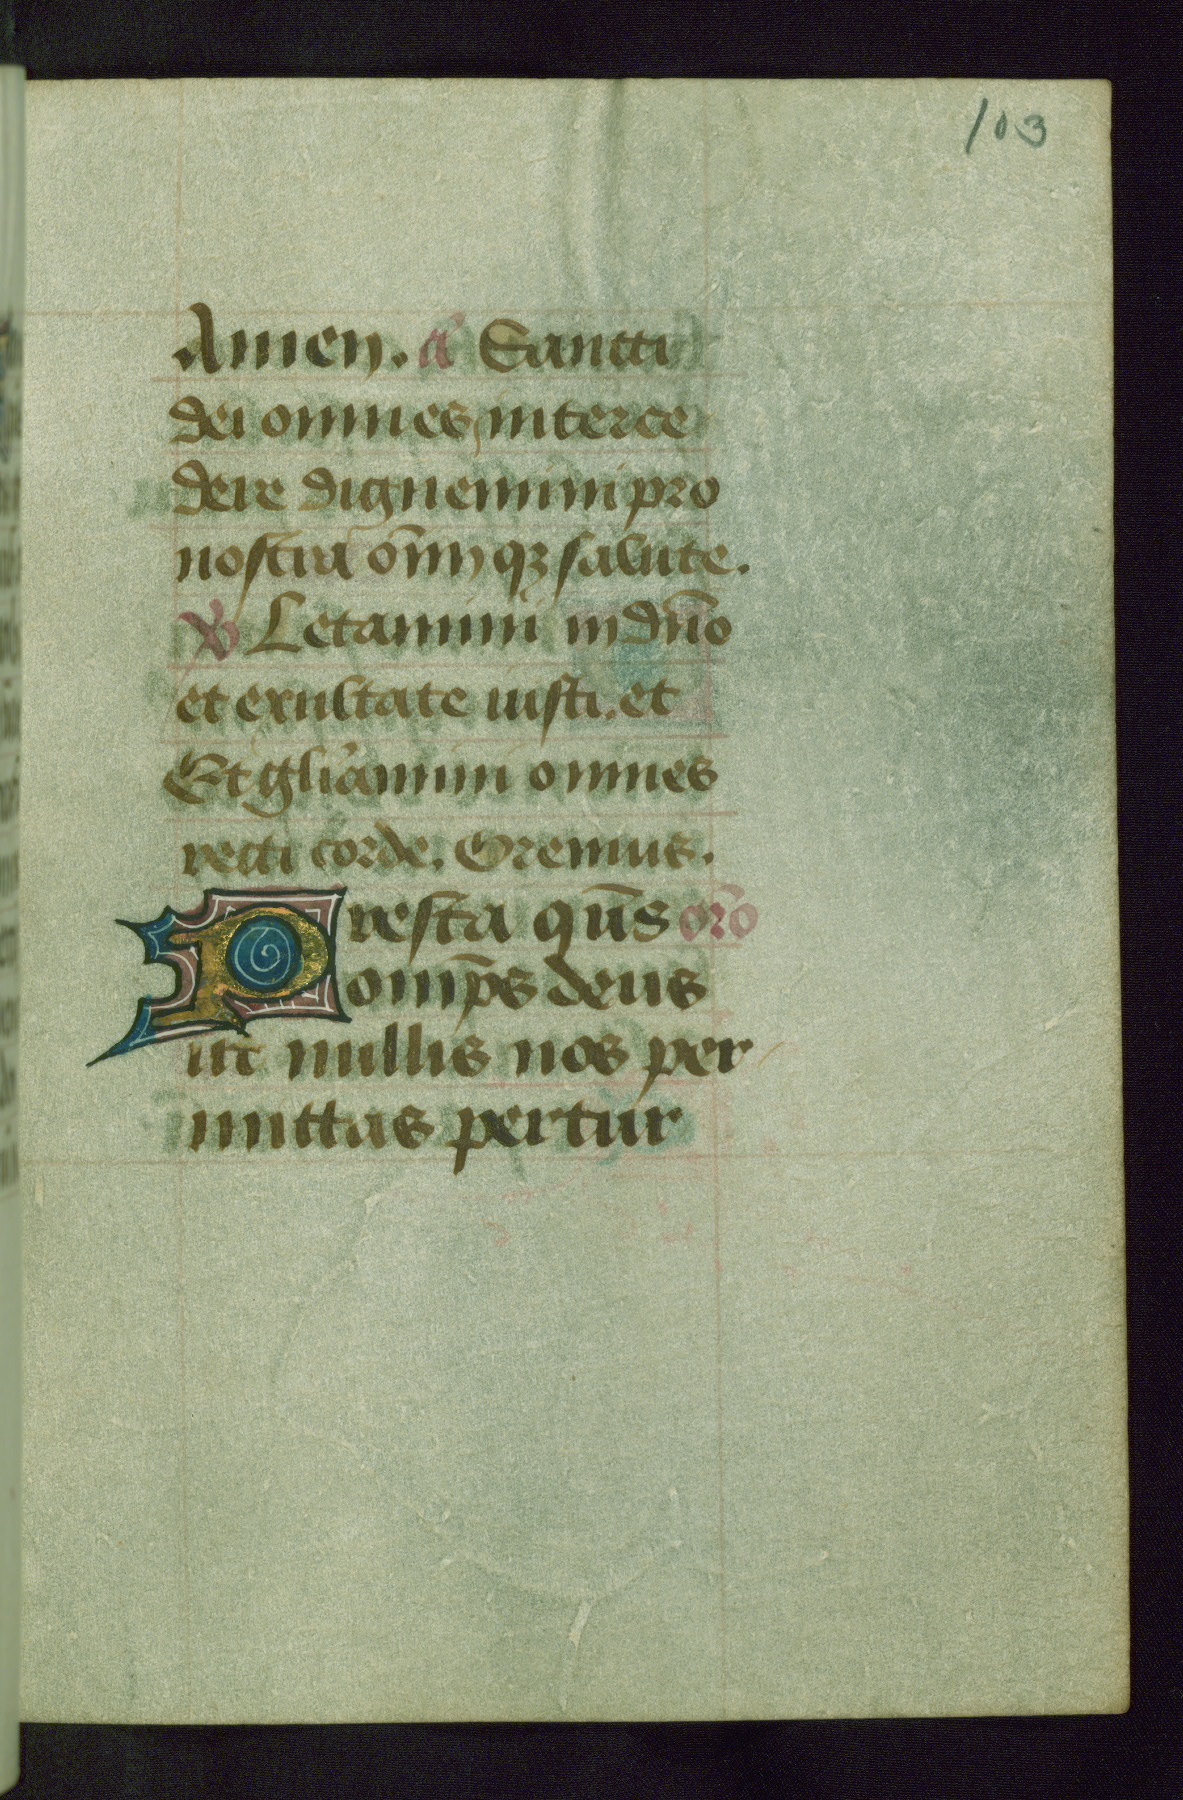 103
Amen. a᷃ Sancti
dei omnes interce
dere dignemini pro
nostra om̄iqꝫ salute.
℣ Letamini in dn̄o
et exultate iusti. et
Et glīamini omnes
recti corde. Oremus.
Presta qūs or̄o
omp̄s deus
ut nullis nos per
mittas pertur